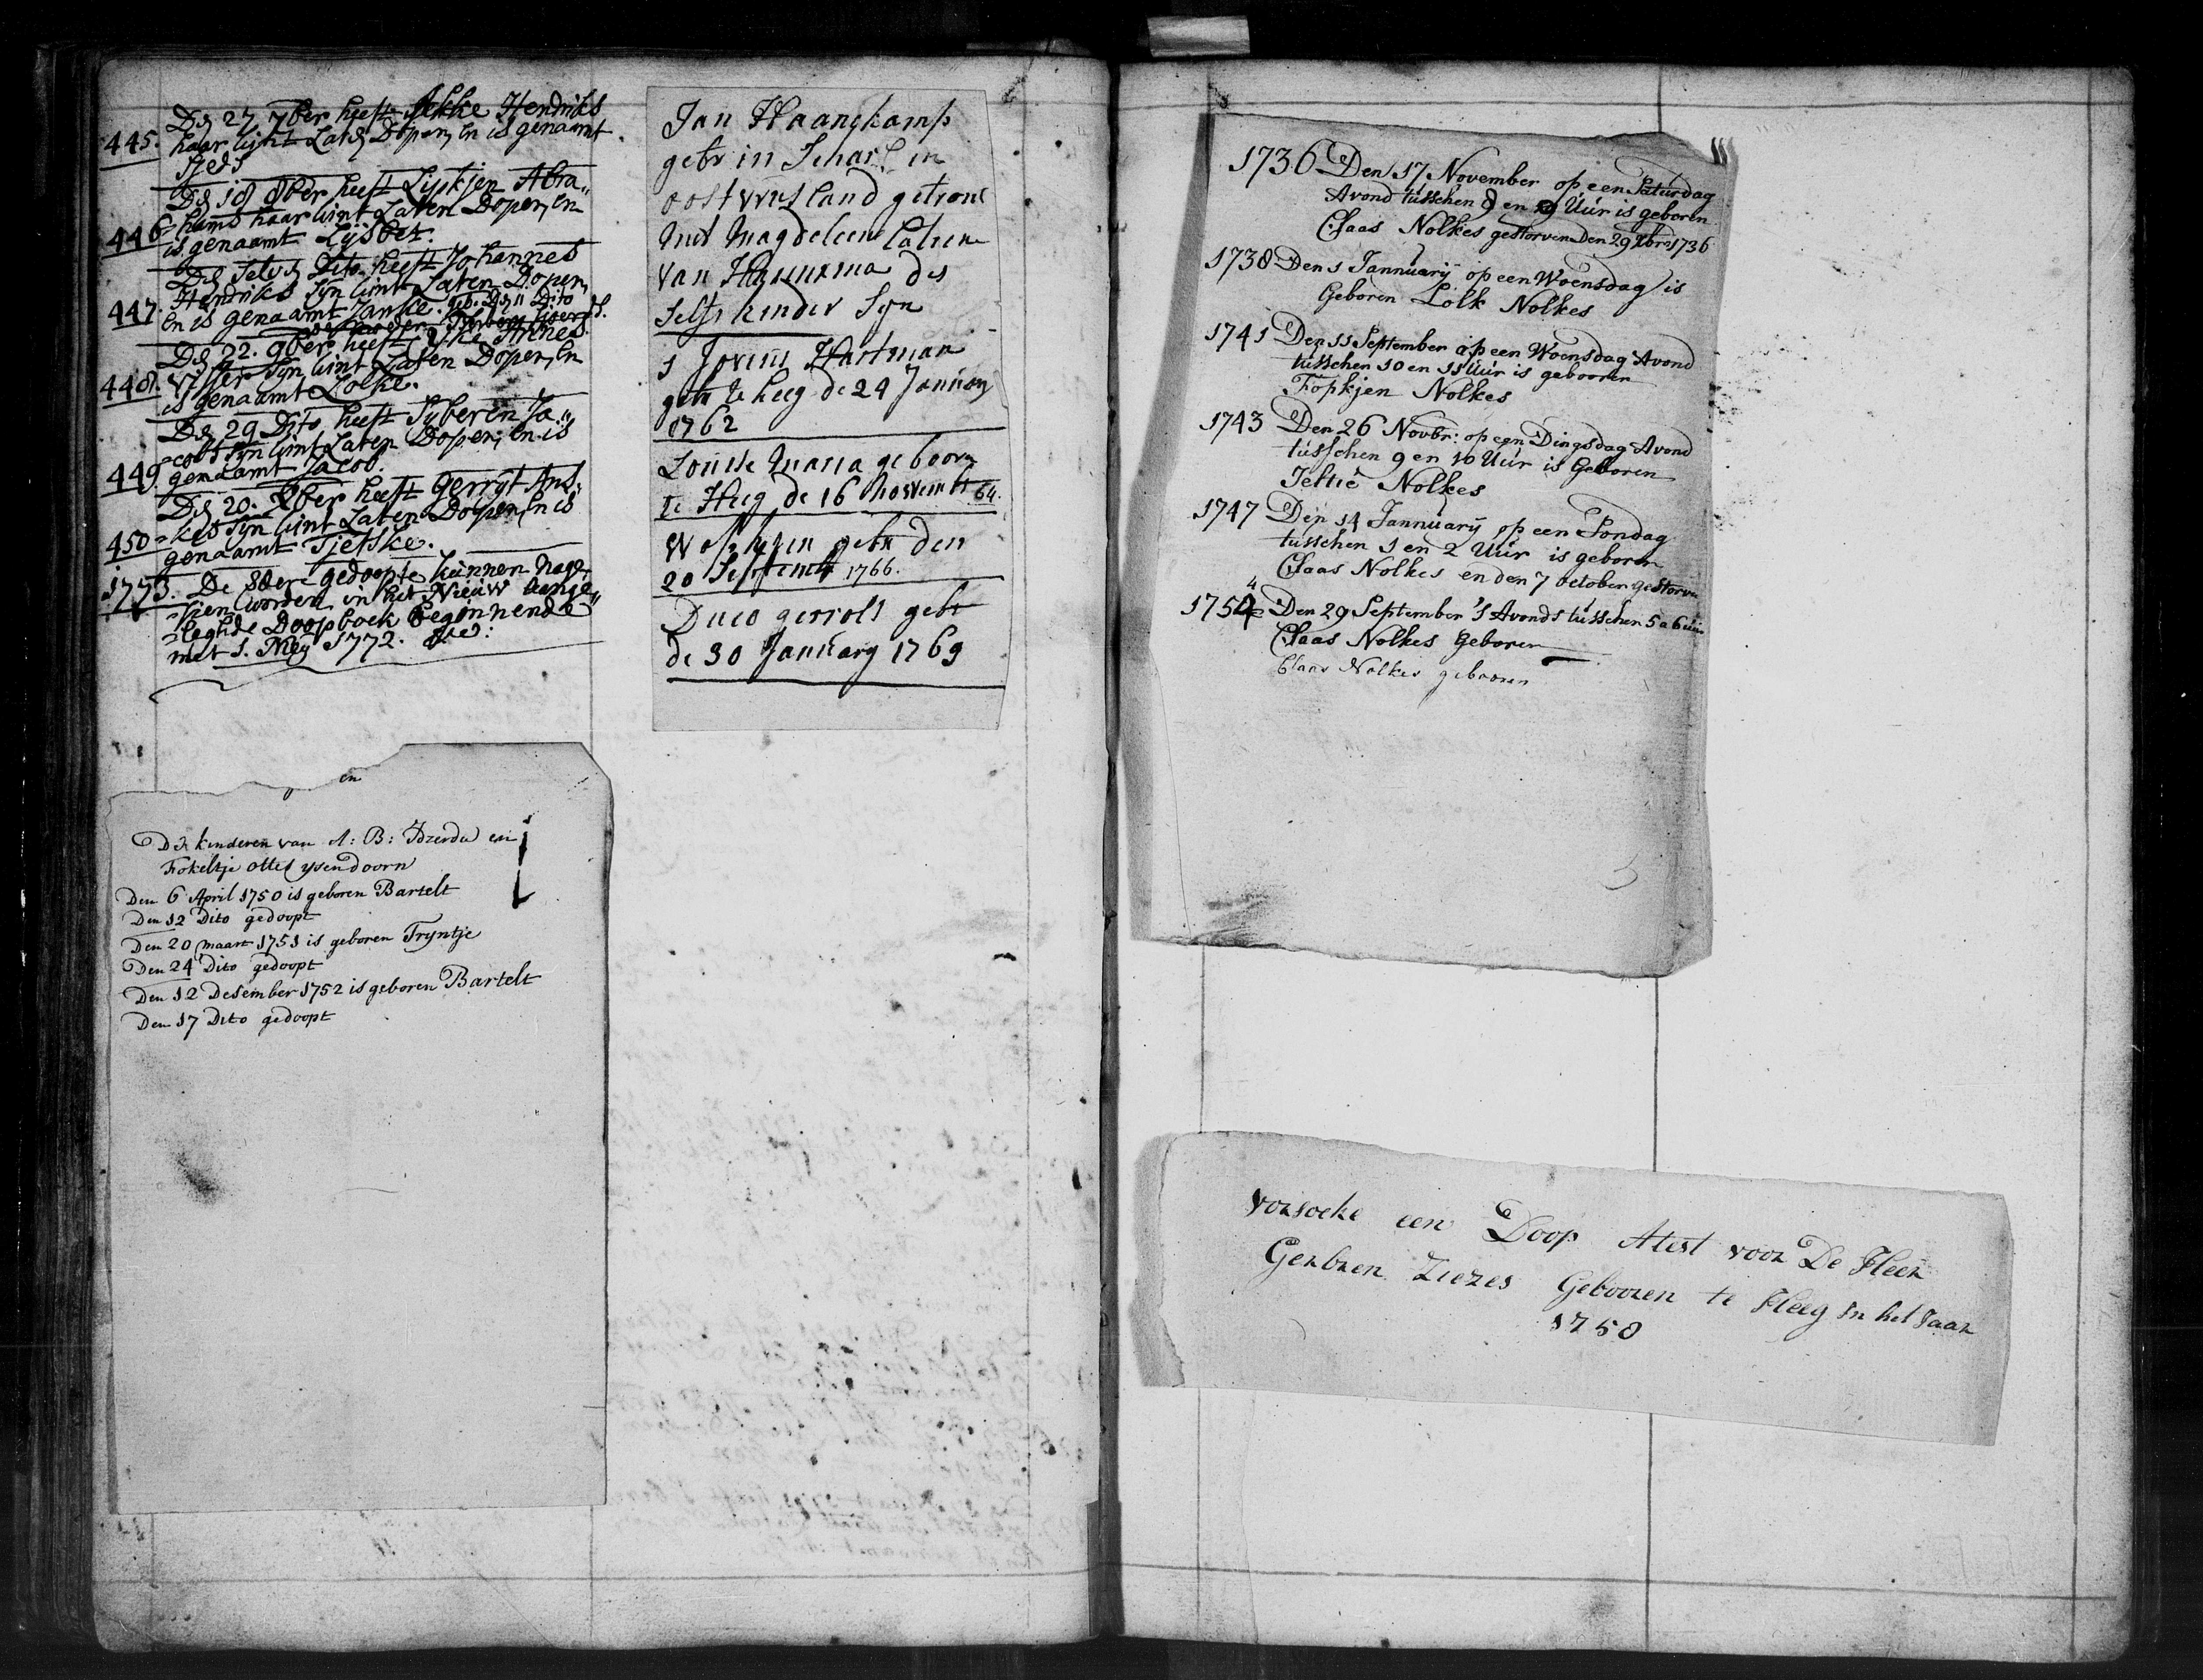 445. Den 27 7ber heeft Jekke Hendriks
haar kint Laten Dopen, en is genaamt
Den 18 8ber heeft Lijskjen Abra„
446 hams haar kint Laten Dopen, en
is genaamt Lijsbet.
Den Selven Dito heeft Johannes
Hendriks Syn kint Laten Dopen,
447. en is genaamt Janke.
Den 22. 9ber heeft Yke Annes
448. Visser Syn kint Laten Dopen, en
is genaamt Lolke.
Den 29 Dito heeft Syberen Ja„
cobs Syn kint Laten Dopen, en is
449 genaamt Jacob.
Den 20. Xber heeft Gerryt Ans„
450 kes Syn kint Laten Dopen, en is
genaamt Tjetske.
1773. De Edere gedoopte kunnen nage„
sien worden in het Nieuw aange„
leghde Doopboek beginnende
met 1. Mey 1772.
en
De kinderen van A: B: Idzerda en
Fokeltje ottes ysendoorn
Den 6 April 1750 is geboren Bartelt
Den 12 Dito gedoopt
Den 20 maart 1751 is geboren Tryntje
Den 24 Dito gedoopt
Den 12 Desember 1752 is geboren Bartelt
Den 17 Dito gedoopt
Jan Haanekamp
gebr in Scharl in
oostvriesland getrout
met Magdeleene Catrine
van Haerinxma des
selfs kinder Syn
1 Jovins Hartman
gebr te heeg de 24 Januari
1762
Louise Maria gebooren
te Heeg de 16 November 64.
Wopkjen gebr den
20 September 1766.
Duco gerrolt gebr
de 30 January 1769
1736 Den 17 November op een Saturdag
Avond tusschen 8 en 9 Uur is geboren
Claas Nolkes gestorven Den 29 Xbr 1736
1738 Den 1 Jannuarij op een Woensdag is
Geboren Lolk Nolkes
1741 Den 11 September op een Woensdag Avond
tusschen 10 en 11 Uur is gebooren
Fopkjen Nolkes
1743 Den 26 Novbr: op een Dingsdag Avond
tusschen 9 en 10 Uur is Geboren
Jeltie Nolkes
1747 Den 14 Jannuarij op een Sondag
tusschen 1 en 2 Uur is geboren
Claas Nolkes en den 7 october gestorven
4
1754 Den 29 September 's Avonds tusschen 5 a 6 uur
Claas Nolkes Geboren
Claas Nolkes gebooren
vorsoeke een Doop Atest voor De Heer
Gerbren Ziezes Gebooren te Heeg in het Jaar
1758